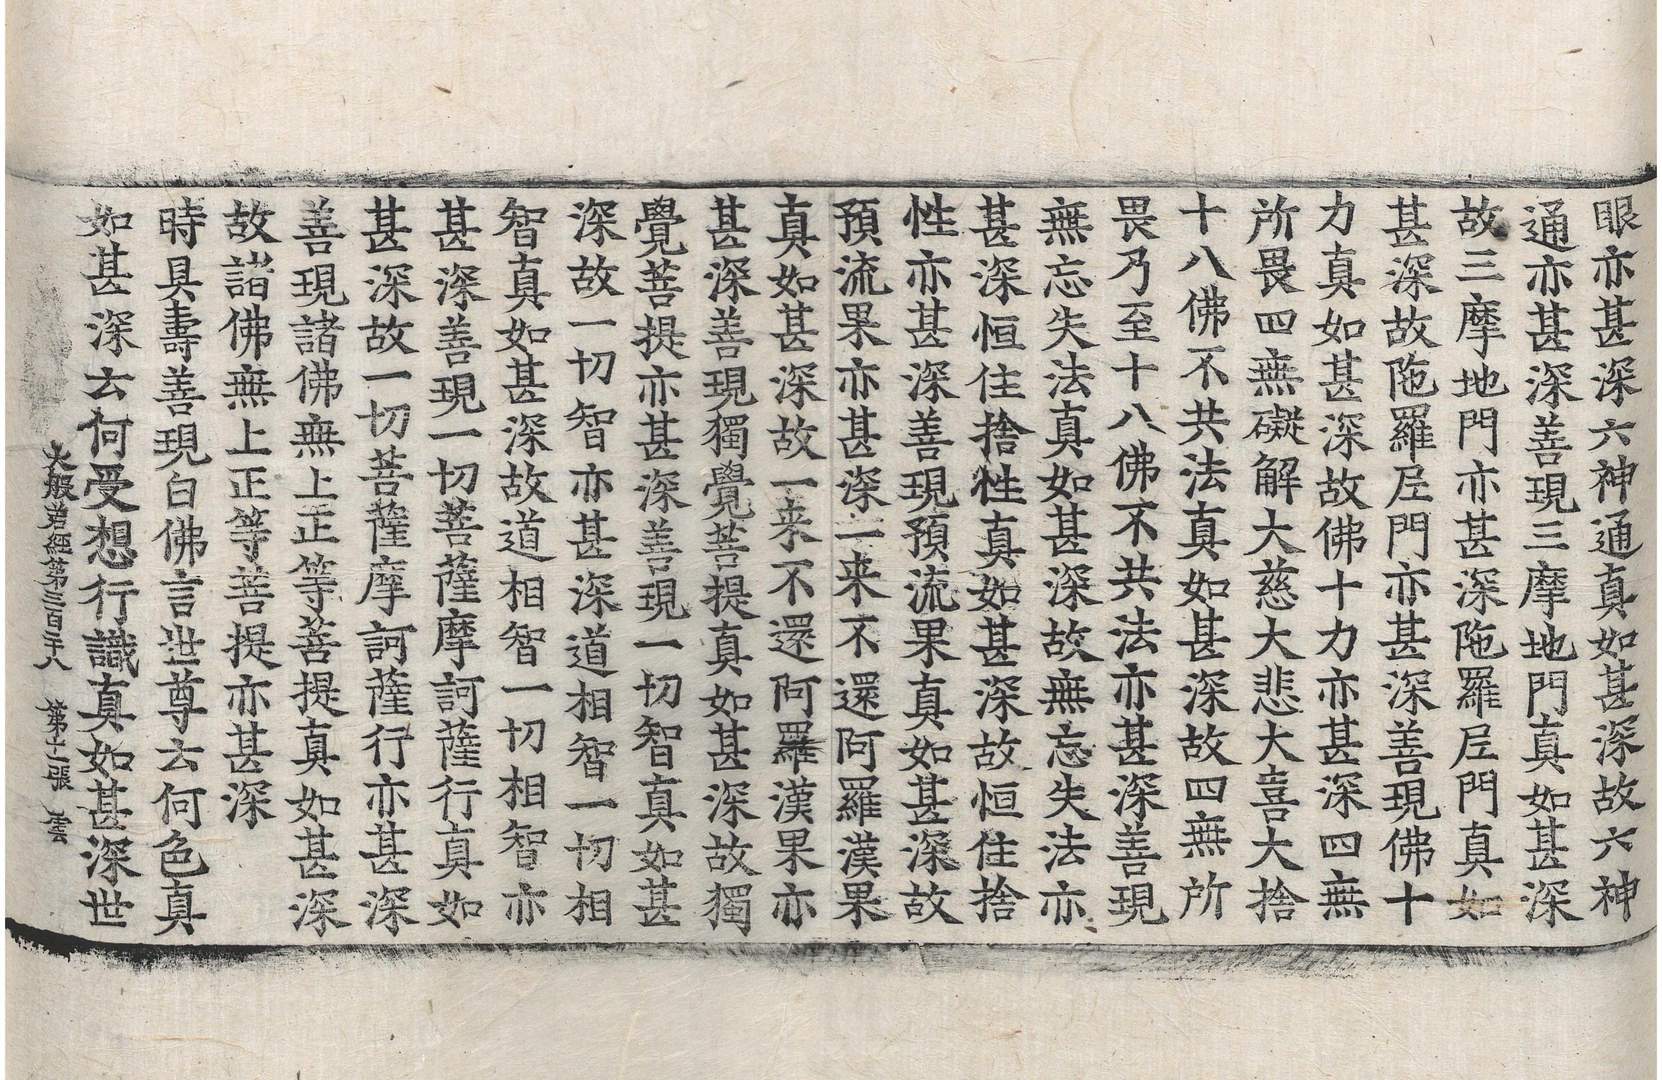 眼亦甚深六神通真如甚深故六神
通亦甚深善現三摩地門真如甚深
故三摩地門亦甚深陁羅尼門真如
甚深故陁羅尼門亦甚深善現佛十
力真如甚深故佛十力亦甚深四無
所畏四無礙解大慈大悲大喜大捨
十八佛不共法真如甚深故四無所
畏乃至十八佛不共法亦甚深善現
無忘失法真如甚深故無忘失法亦
甚深恒住捨性真如甚深故恒住捨
性亦甚深善現預流果真如甚深故
預流果亦甚深一来不還阿羅漢果
真如甚深故一来不還阿羅漢果亦
甚深善現獨覺菩提真如甚深故獨
覺菩提亦甚深善現一切智真如甚
深故一切智亦甚深道相智一切相
智真如甚深故道相智一切相智亦
甚深善現一切菩薩摩訶薩行真如
甚深故一切菩薩摩訶薩行亦甚深
善現諸佛無上正等菩提真如甚深
故諸佛無上正等菩提亦甚深
時具壽善現白佛言世尊云何色真
如甚深云何受想行識真如甚深世
大般若經第三百二十八 第十張